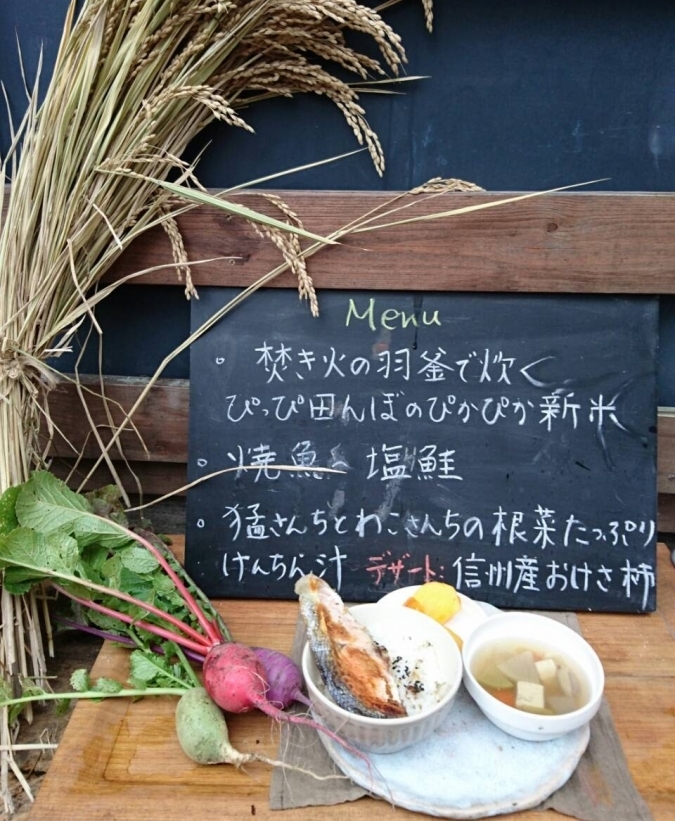 Menu
。焚き火の羽釜で炊く
ぴっぴ田んぼのぴかぴか新米
。焼魚 塩鮭
。猛さんちとわこさんちの根菜たっぷり
けんちん汁 デザート:信州産おけさ柿